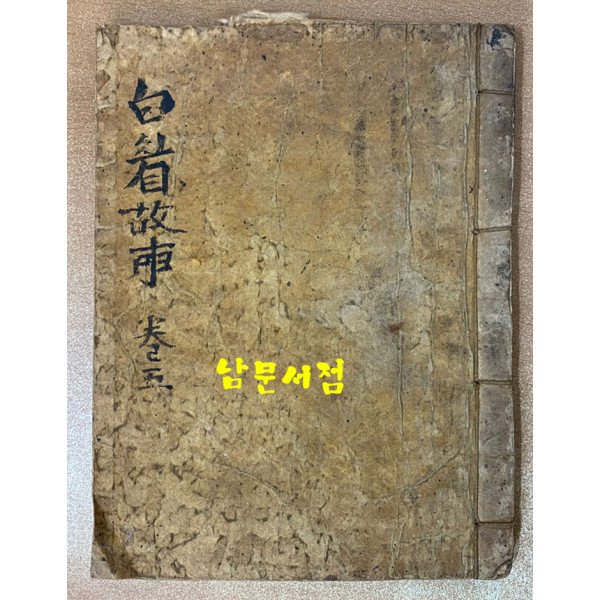 白眉故事 卷五
남문서점